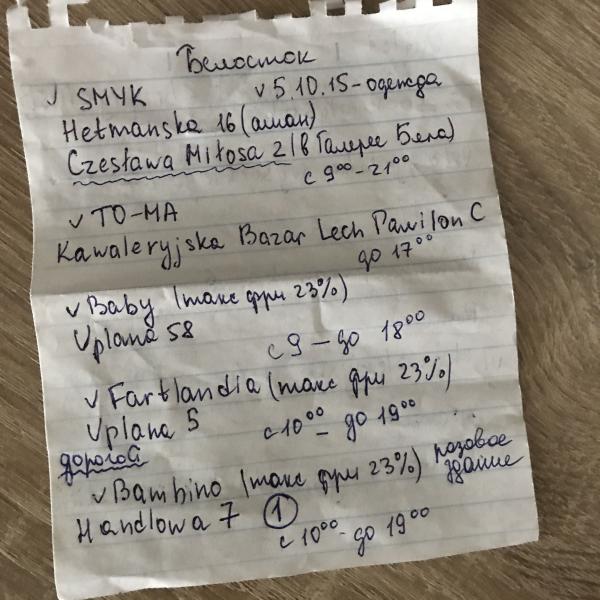 Белосток
✓ SMYK ✓ 5.10.15 - одежда
Hetmanska 16 (ашан)
Czesława Miłosa 2 (в Галерее Бяла)
с 9⁰⁰ - 21⁰⁰
✓ TO-MA
Kawaleryjska Bazar Lech Pawilon C
до 17⁰⁰
✓ Baby (такс фри 23%)
Uplana 58
с 9 - до 18⁰⁰
✓ Fartlandia (такс фри 23%)
Uplana 5
с 10⁰⁰ - до 19⁰⁰
дорогой
✓ Bambino (такс фри 23%) розовое здание
Handlowa 7 ①
с 10⁰⁰ - до 19⁰⁰